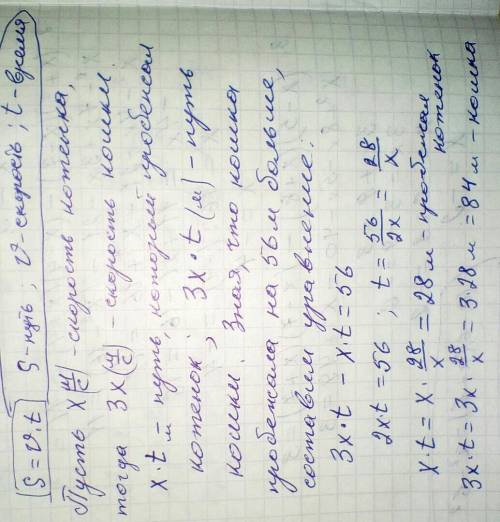 S = v·t S - путь; v - скорость; t - время
Пусть x (м/с) - скорость котенка,
тогда 3x (м/с) - скорость кошки.
x·t м - путь, который пробежал
котенок; 3x·t (м) - путь
кошки. Зная, что кошка
пробежала на 56 м больше,
составим уравнение:
3x·t - x·t = 56
2x·t = 56; t = 56/2x = 28/x
x·t = x · 28/x = 28 м - пробежал котенок
3x·t = 3x · 28/x = 3·28 м = 84 м - кошка